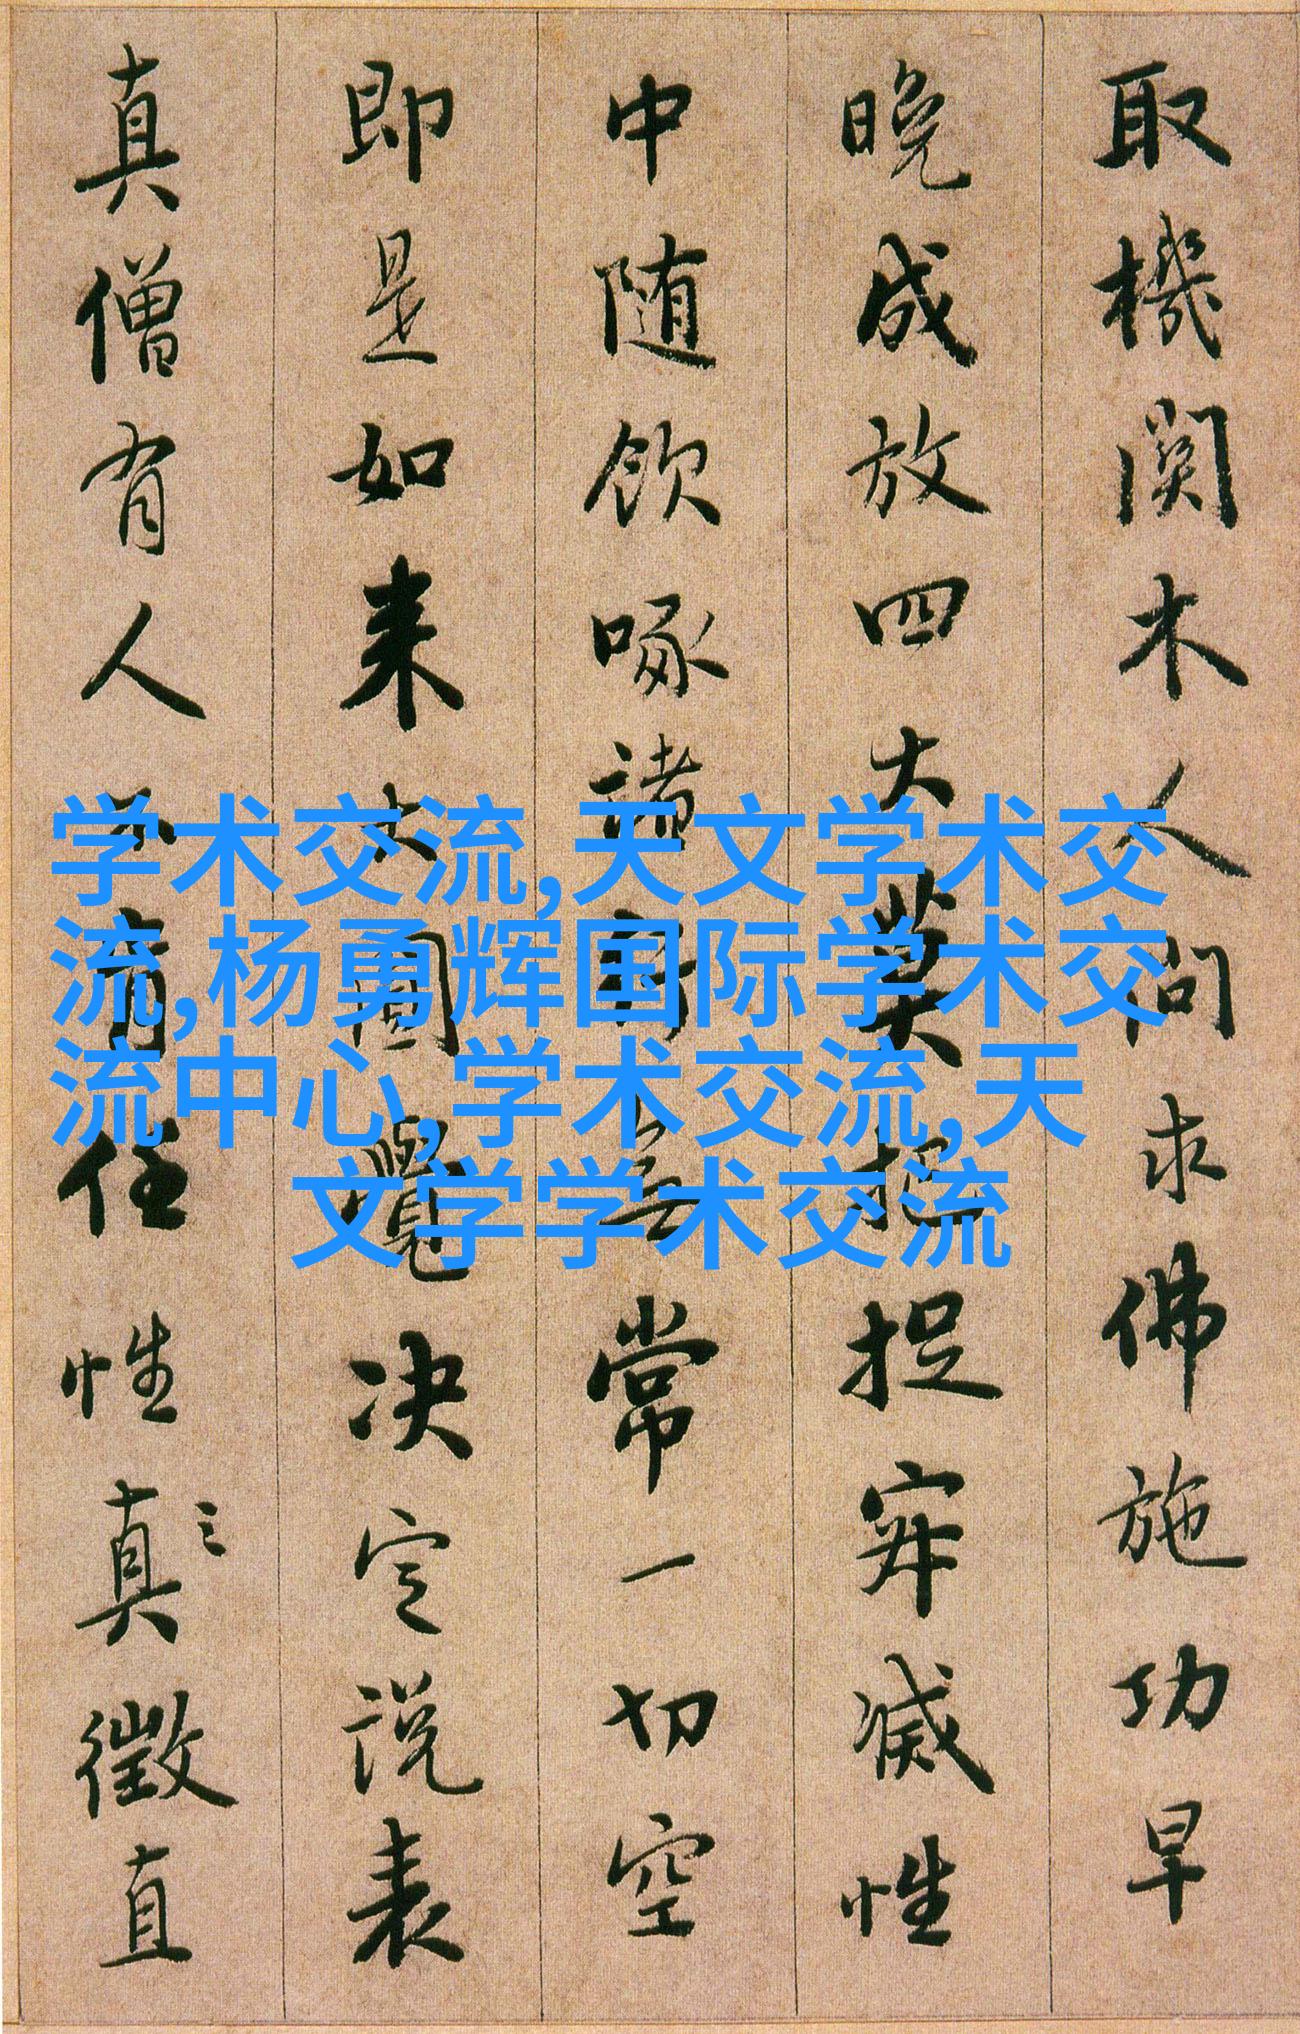 取機関木人問求佛施功早
晚成放四大莫把捉寂滅性
中随飲啄諸行無常一切空
即是如来大圓覺决定説表
真僧有人不肯任性真徵直
学术交流,天文学术交
流,杨勇辉国际学术交
流中心,学术交流,天
文学学术交流